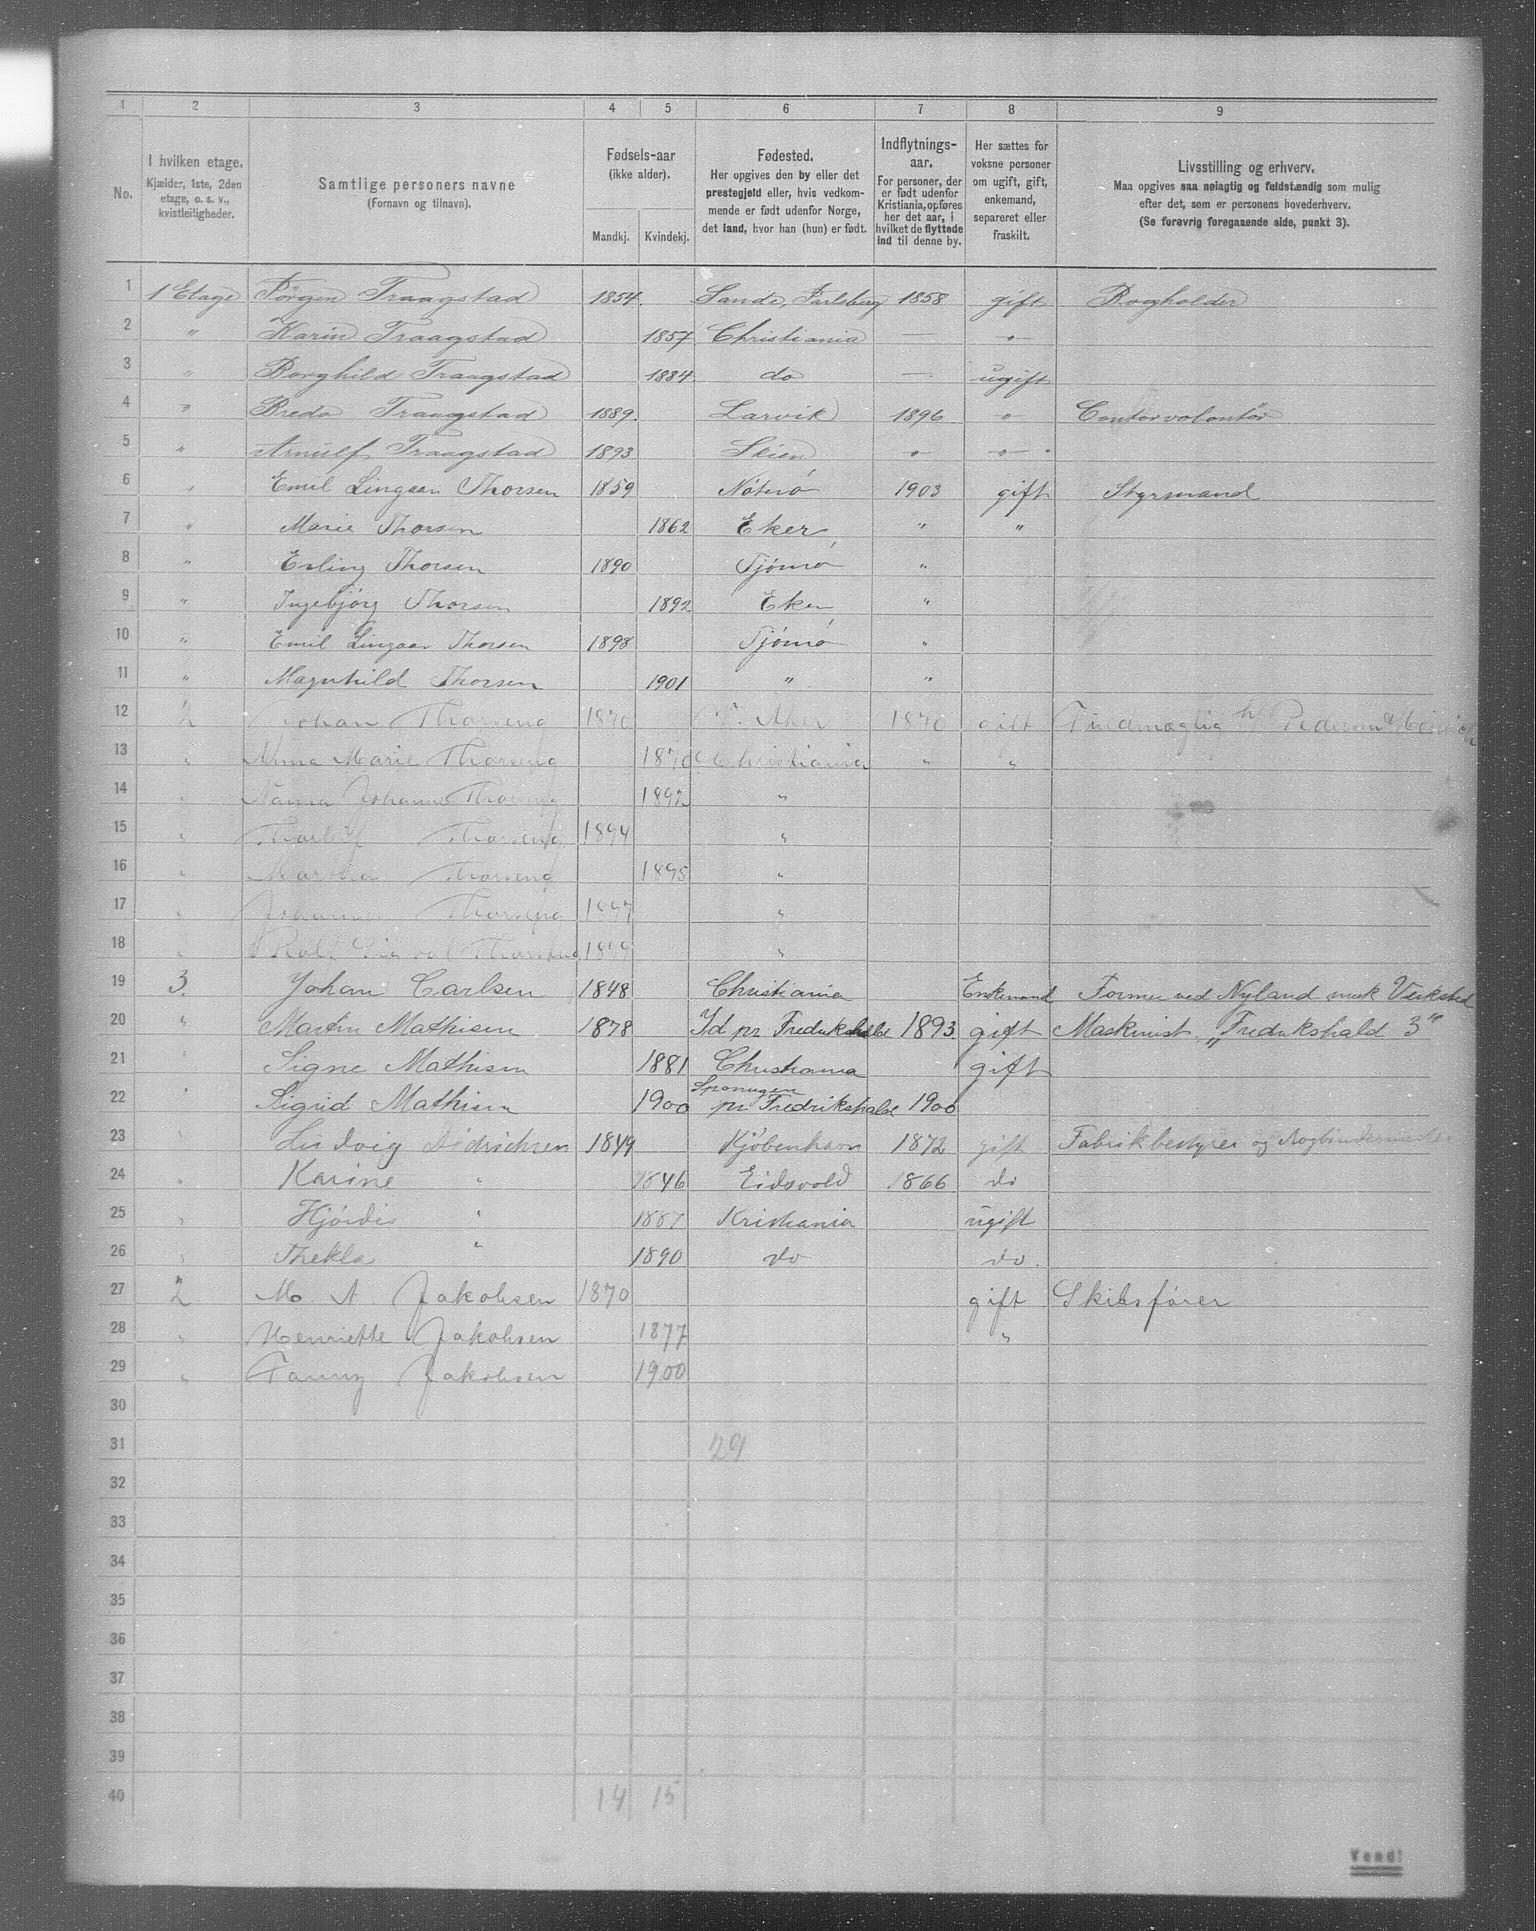 1 2 3 4 5 6 7 8 9
No.
I hvilken etage.
Kjælder, 1ste, 2den
etage, o. s. v.,
kvistleiligheder.
Samtlige personers navne
(Fornavn og tilnavn).
Fødsels-aar
(ikke alder).
Mandkj. Kvindekj.
Fødested.
Her opgives den by eller det
prestegjeld eller, hvis vedkom-
mende er født udenfor Norge,
det land, hvor han (hun) er født.
Indflytnings-
aar.
For personer, der
er født udenfor
Kristiania, opføres
her det aar, i
hvilket de flyttede
ind til denne by.
Her sættes for
voksne personer
om ugift, gift,
enkemand,
separeret eller
fraskilt.
Livsstilling og erhverv.
Maa opgives saa nøiagtig og fuldstændig som mulig
efter det, som er personens hovederhverv.
(Se forøvrig foregaaende side, punkt 3).
1 1 Etage Jørgen Traagstad 1854. Sande, Jarlsberg 1858 gift Bogholder
2 " Karin Traagstad 1857 Christiania — -"-
3 " Borghild Traagstad 1884 do — ugift
4 " Bredo Traagstad 1889. Larvik 1896 -"- Contorvolontör
5 " Arnulf Traagstad 1893 Skien -"- -"-
6 " Emil Lingaas Thorsen 1859 Nøterø 1903 gift Styrmand
7 " Marie Thorsen 1862 Eker " "
8 " Erling Thorsen 1890 Tjømø "
9 " Ingebjørg Thorsen 1892 Eker "
10 " Emil Lingaas Thorsen 1898 Tjømø "
11 " Magnhild Thorsen 1901 " "
12 2 Johan Thorseng 1870 V. Aker 1870 gift Fuldmægtig h/ Pedersen &
13 " Anna Marie Thorseng 1870 Christiania " "
14 " Nanna Johanne Thorseng 1892 "
15 " Thorleif Thorseng 1894 "
16 " Martha Thorseng 1895 "
17 " Johannes Thorseng 1897 "
18 " Rolf Sigval Thorseng 1899 "
19 3. Johan Carlsen 1848 Christiania Enkemand Former ved Nyland mek Verksted
20 " Martin Mathisen 1878 Id pr Fredrikshald 1893. gift Maskinist „Fredrikshald 3"
21 " Signe Mathisen 1881 Christiania gift
22 " Sigrid Mathisen 1900 pr Fredrikshald 1900
23 " Ludvig Didrichsen 1849 Kjøbenhavn 1872 gift Fabrikbestyrer og Bogbindermester
24 " Karine " 1846 Eidsvold 1866 do
25 " Hjørdis " 1887 Kristiania ugift
26 " Thekla " 1890 do do.
27 2 M. A Jakobsen 1870 gift Skibsfører
28 " Henriette Jakobsen 1877 "
29 " Fanny Jakobsen 1900
30
31 29
32
33
34
35
36
37
38
39
40 14 15
Vend!